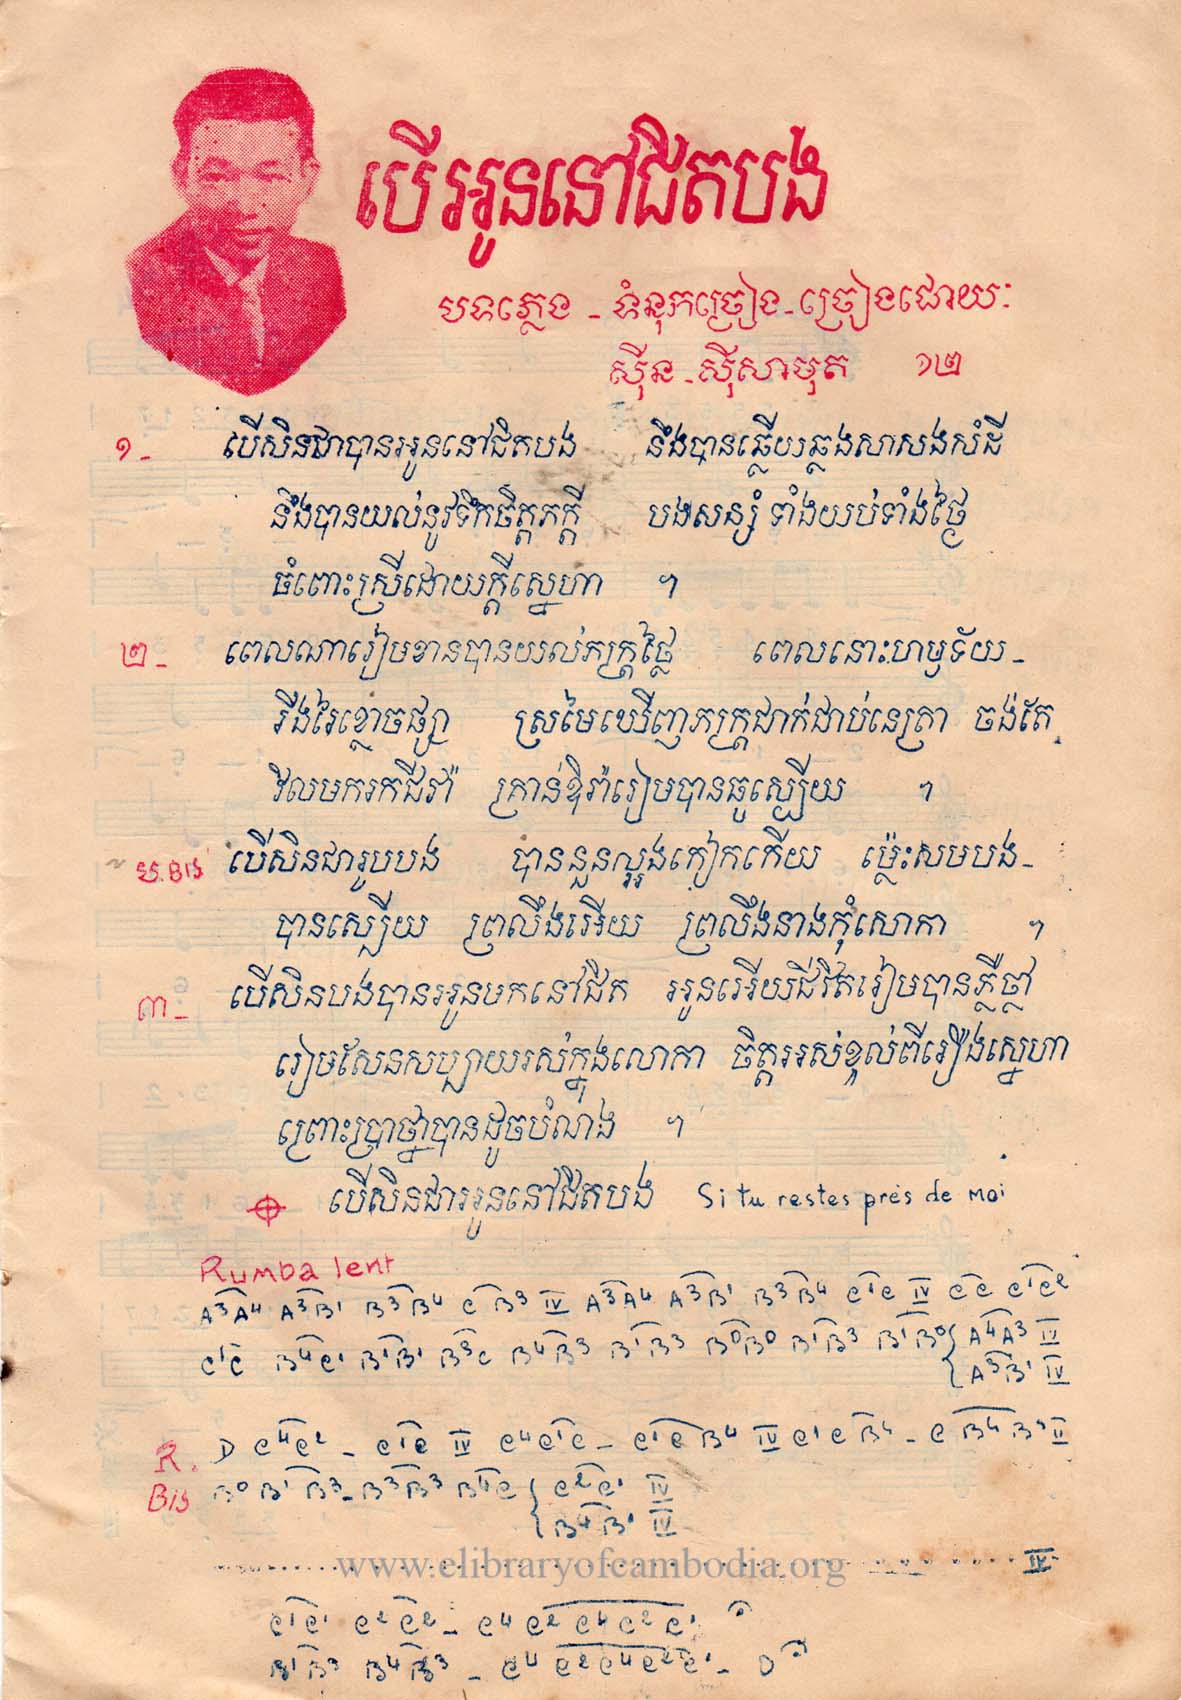 បើអូននៅជិតបង
បទភ្លេង - ទំនុកច្រៀង - ច្រៀងដោយ:
ស៊ីន - ស៊ីសាមុត ១២
១- បើសិនជាបានអូននៅជិតបង នឹងបានឆ្លើយឆ្លងសាសងសំដី
នឹងបានយល់នូវទឹកចិត្តភក្តី បងសន្សំ ទាំងយប់ទាំងថ្ងៃ
ធំពោះស្រីដោយក្តីស្នេហា ។
២- ពេលណារៀមខានបានយល់ភក្ត្រថ្លៃ ពេលនោះហឫទ័យ-
រីងរៃខ្លោចផ្សា ស្រមៃឃើញភក្ត្រជាក់ជាប់នេត្រា ចង់តែ
វិលមករកជីវ៉ា គ្រាន់ឱរ៉ារៀមបានធូរស្បើយ ។
ប.Bis បើសិនជារូបបង បាននួនល្អងកៀកកើយ ម៉្លេះសមបង-
បានស្បើយ ព្រលឹងអើយ ព្រលឹងនាងកុំសោកា ។
៣- បើសិនបងបានអូនមកនៅជិត អូនអើយជីវិតរៀមបានភ្លឺថ្លា
រៀមសែនសប្បាយរស់ក្នុងលោកា ចិត្តអស់ខ្វល់ពីរឿងស្នេហា
ព្រោះប្រាថ្នាបានដូចបំណង ។
បើសិនជាអូននៅជិតបង Si tu restes près de moi
Rumba lent
A³A⁴ A³B¹ B³B⁴ C B³ IV A³A⁴ A³B¹ B³B⁴ C¹C IV CC C¹C²
C¹C B⁴C¹ B¹B¹ B³C B⁴B³ B¹B³ B⁰B⁰ B¹B³ B¹B⁰ A⁴A³ IV
A³B¹ IV
R. D C⁴C² - C¹C IV C⁴C¹C - C¹C B⁴ IV C¹C B⁴ - C B⁴B³ II
Bis B⁰ B¹B³ - B³B³ B⁴C C²C¹ IV
B⁴B¹ IV
www.elibraryofcambodia.org IV
C¹C¹ C²C² - C⁴ C²C⁴C²C¹
B¹B³ B⁴B³ - C⁴ C²C⁴C²C¹ - D